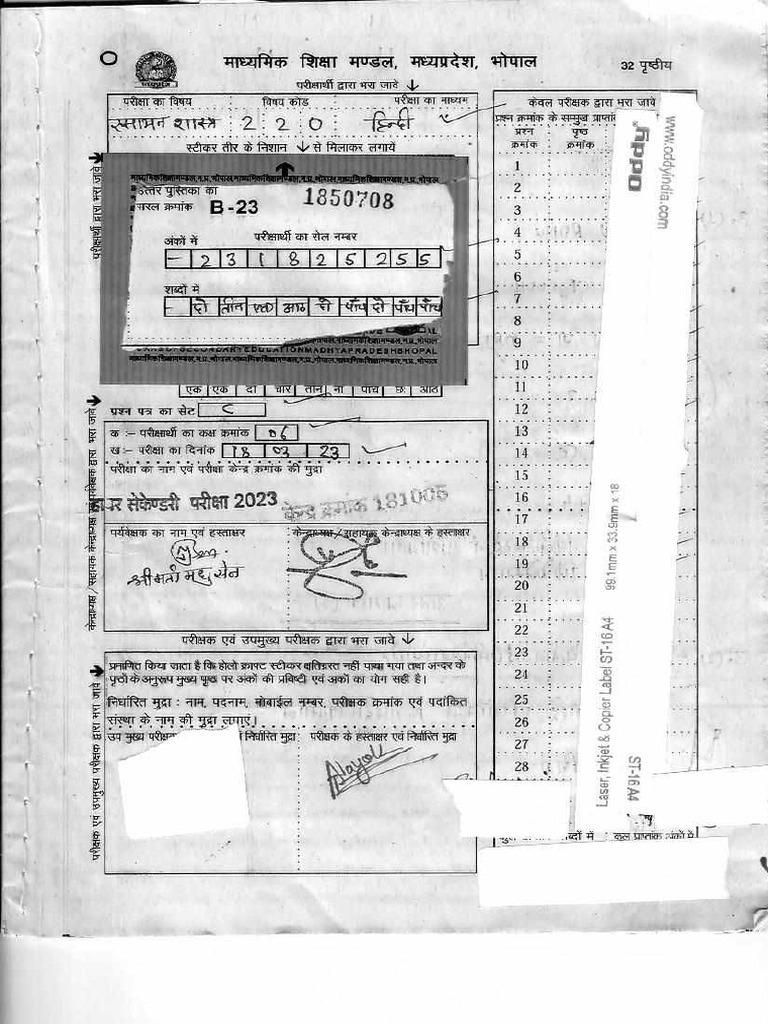 माध्यमिक शिक्षा मण्डल, मध्यप्रदेश, भोपाल
32 पृष्ठीय
परीक्षार्थी द्वारा भरा जावे ↓
परीक्षा का विषय विषय कोड परीक्षा का माध्यम
रसायन शास्त्र 2 2 0 हिन्दी
स्टीकर तीर के निशान ↓ से मिलाकर लगायें
परीक्षार्थी द्वारा भरा जावे
उत्तर पुस्तिका का
सरल क्रमांक B-23 1850708
अंकों में परीक्षार्थी का रोल नम्बर
- 2 3 1 8 2 5 2 5 5
शब्दों में
- दो तीन एक आठ दो पाँच दो पाँच पाँच
एक एक दो चार तीन नौ पांच छः आठ
प्रश्न पत्र का सेट C
क :- परीक्षार्थी का कक्ष क्रमांक 06
ख :- परीक्षा का दिनांक 18 03 23
परीक्षा का नाम एवं परीक्षा केन्द्र क्रमांक की मुद्रा
हायर सेकेण्डरी परीक्षा 2023 केन्द्र क्रमांक 181005
पर्यवेक्षक का नाम एवं हस्ताक्षर केन्द्राध्यक्ष / सहायक केन्द्राध्यक्ष के हस्ताक्षर
श्रीमती मधु सेन
परीक्षक एवं उपमुख्य परीक्षक द्वारा भरा जावे ↓
प्रमाणित किया जाता है कि होलो क्राफ्ट स्टीकर क्षतिग्रस्त नहीं पाया गया तथा अन्दर के
पृष्ठों के अनुरूप मुख्य पृष्ठ पर अंकों की प्रविष्टी एवं अंकों का योग सही है।
निर्धारित मुद्रा : नाम, पदनाम, मोबाईल नम्बर, परीक्षक क्रमांक एवं पदांकित
संस्था के नाम की मुद्रा लगाएं।
उप मुख्य परीक्षक निर्धारित मुद्रा परीक्षक के हस्ताक्षर एवं निर्धारित मुद्रा
परीक्षक एवं उपमुख्य परीक्षक द्वारा भरा जावे
केवल परीक्षक द्वारा भरा जावे
प्रश्न क्रमांक के सम्मुख
प्रश्न पृष्ठ
क्रमांक क्रमांक
1
2
3
4
5
6
7
8
9
10
11
12
13
14
15
16
17
18
19
20
21
22
23
24
25
26
27
28
शब्दों में कुल प्राप्तांक अंकों में
www.oddyindia.com
oddy
Laser, Inkjet & Copier Label ST-16 A4 99.1mm x 33.9mm x 18
ST-16 A4